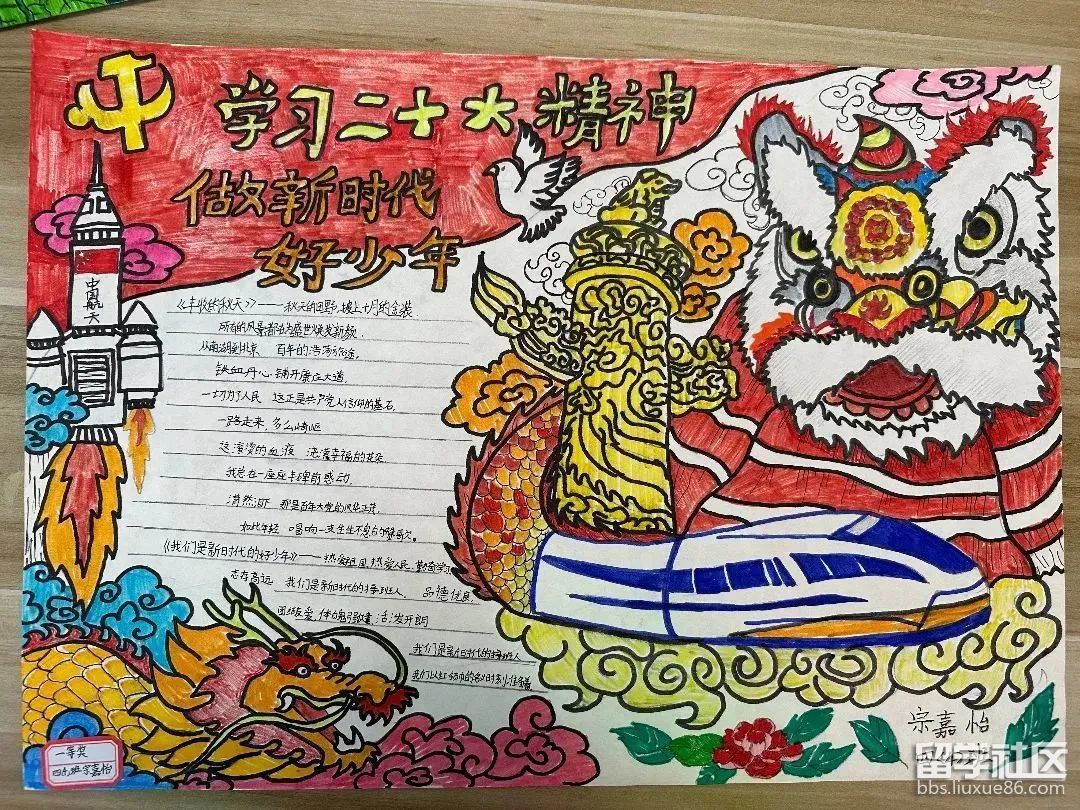 学习二十大精神
做新时代
好少年
中国航天
《丰收的秋天》——秋天的田野,披上十月的金装
所有的风景都在为
从南湖到北京 百年的浩荡征途,
铁血丹心 铺开康庄大道,
一切为了人民 这正是共产党人信仰的基石,
一路走来,多么崎岖
这滚烫的血液 浇灌幸福的花朵
我总在一座座丰碑前感动,
潸然泪下 那是百年大党的风华正茂,
如此年轻 唱响一支生生不息的赞歌。
《我们是新时代的好少年》——热爱祖国,热爱人民,勤奋学习
志存高远 我们是新时代的接班人, 品德优良,
团结友爱,体魄强健,活泼开朗
我们是新时代的接班人
我们以红领巾的名义时刻准备着
一等奖
宗嘉怡
宗嘉怡
留学社区
bbs.liuxue86.com